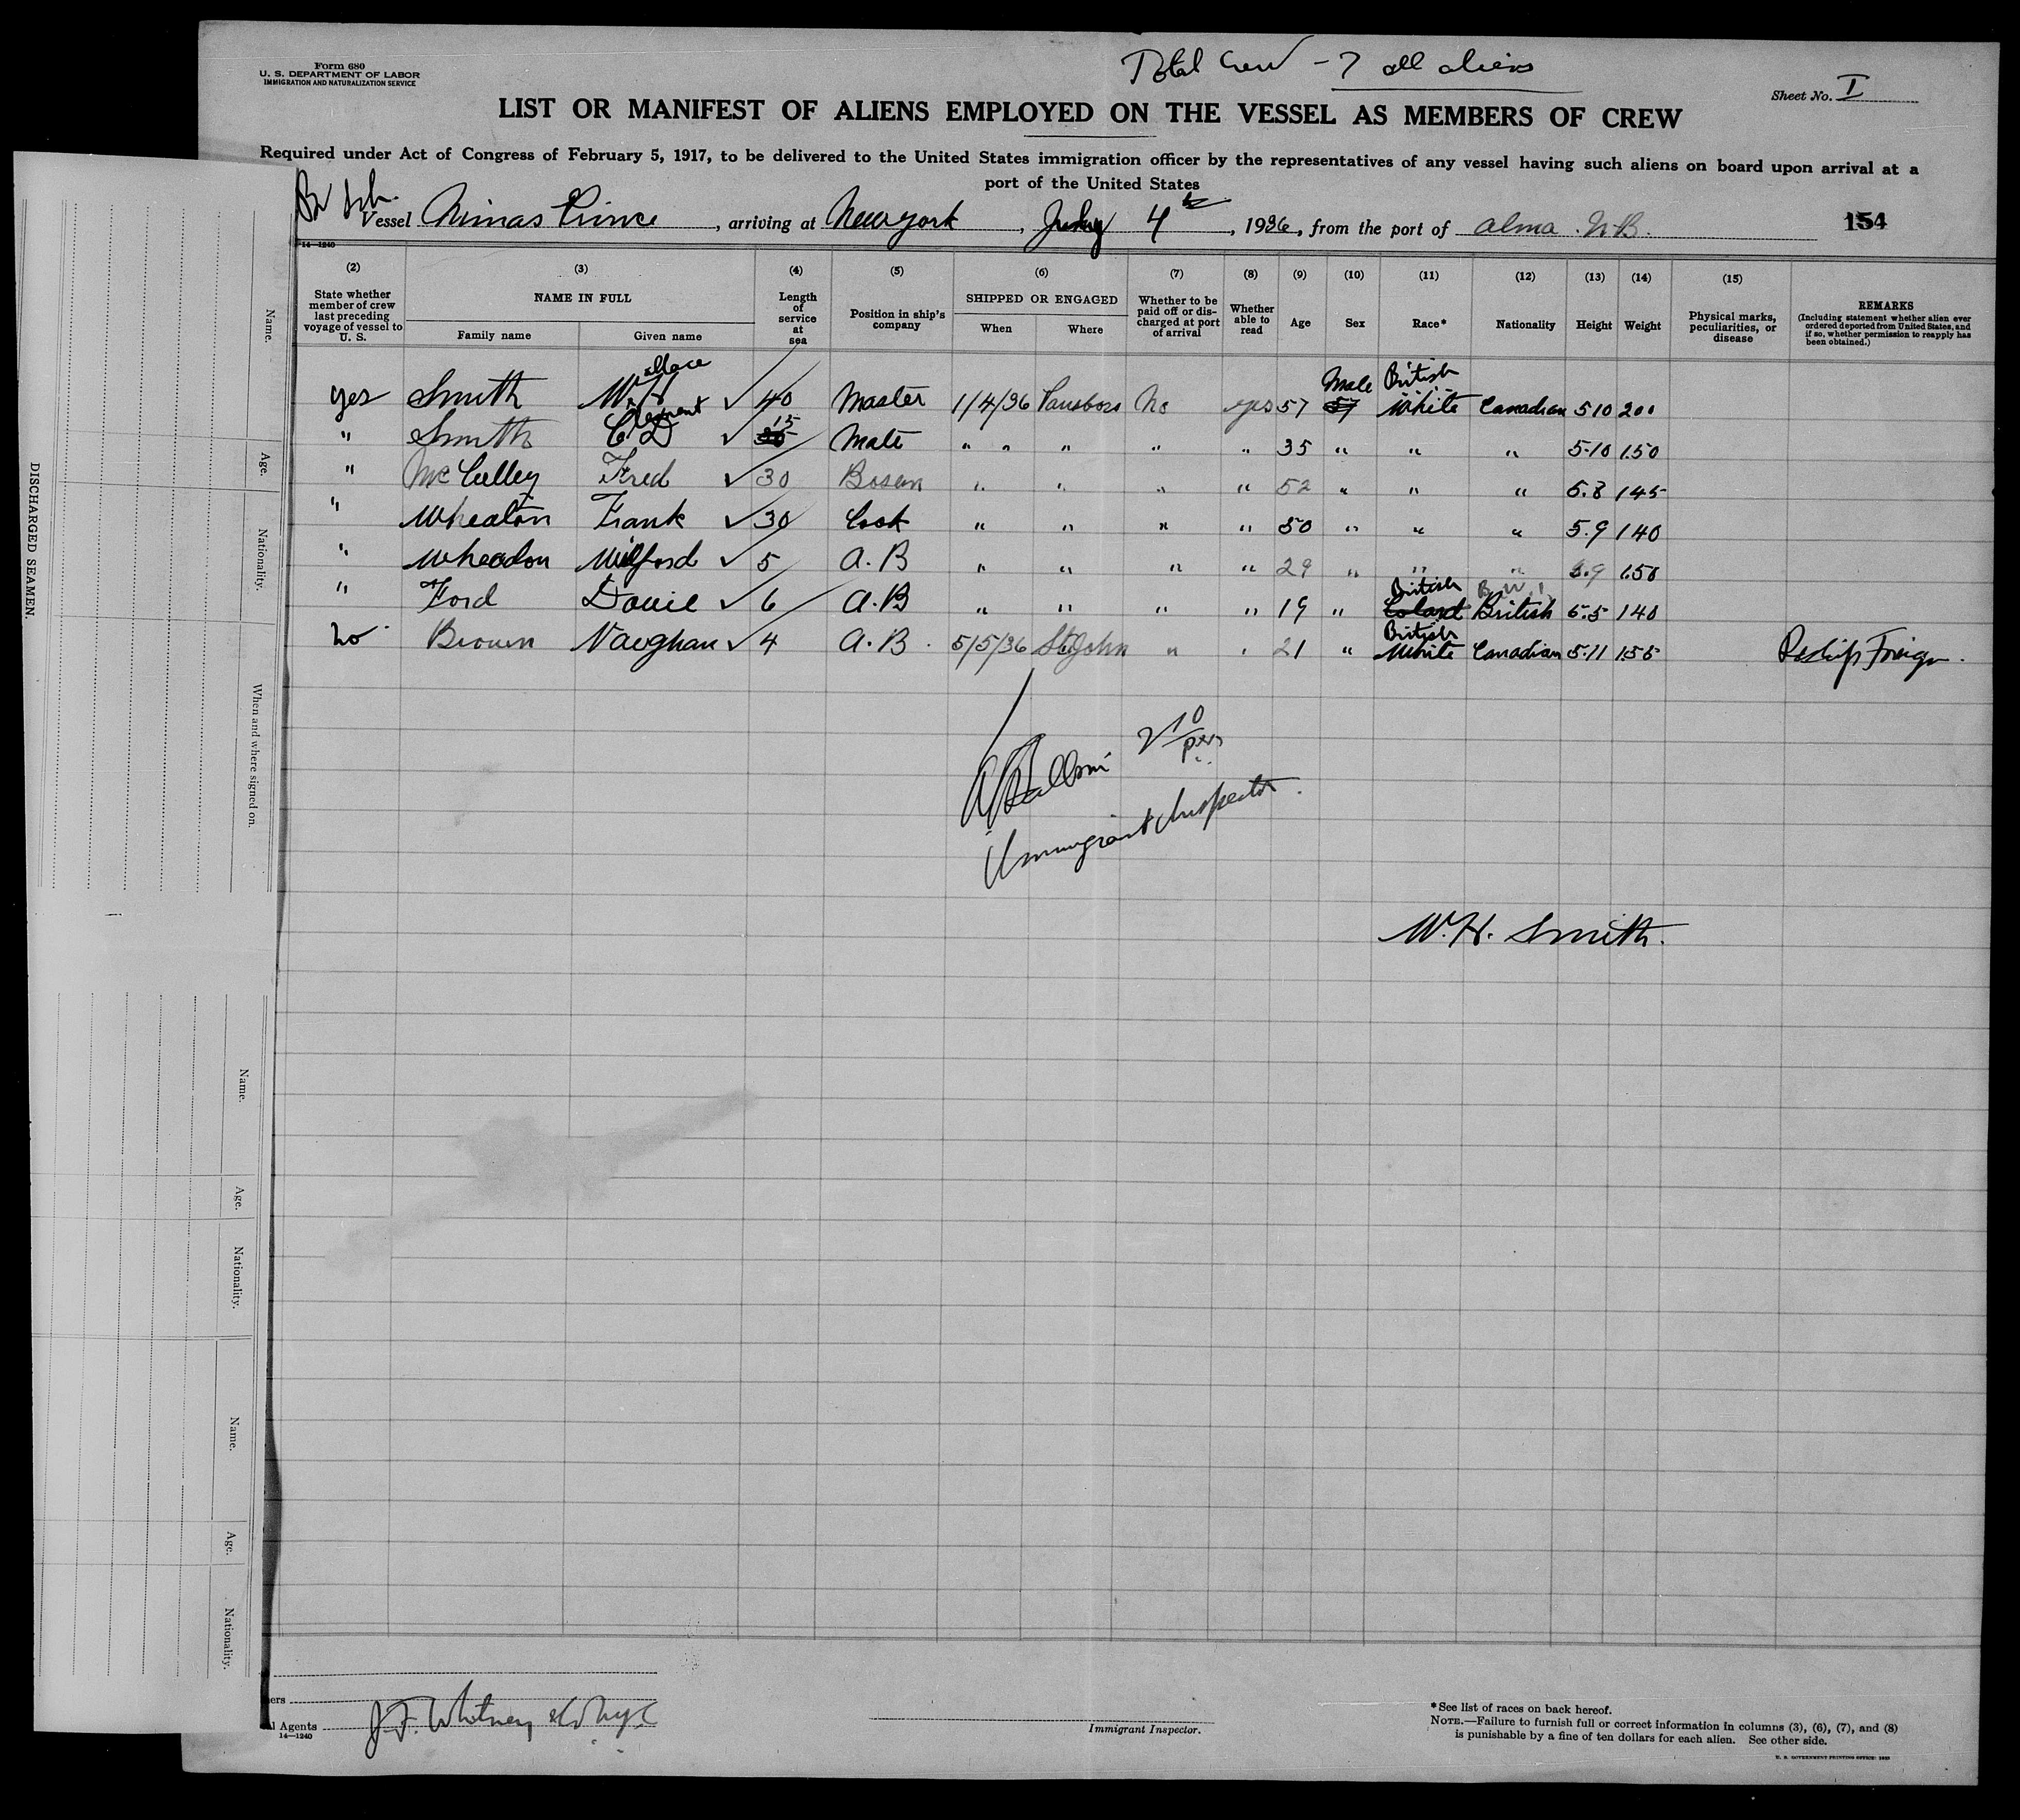 Form 680
U. S. DEPARTMENT OF LABOR
IMMIGRATION AND NATURALIZATION SERVICE
Total Crew - 7 all aliens
Sheet No. I
LIST OR MANIFEST OF ALIENS EMPLOYED ON THE VESSEL AS MEMBERS OF CREW
Required under Act of Congress of February 5, 1917, to be delivered to the United States immigration officer by the representatives of any vessel having such aliens on board upon arrival at a
port of the United States
Br Sch.
Vessel Minas Prince, arriving at New York, July 4th, 1936, from the port of Alma N.B. 154
14—1240
(2) (3) (4) (5) (6) (7) (8) (9) (10) (11) (12) (13) (14) (15)
State whether member of crew last preceding voyage of vessel to U. S.
NAME IN FULL
Family name Given name
Length of service at sea
Position in ship's company
SHIPPED OR ENGAGED
When Where
Whether to be paid off or discharged at port of arrival
Whether able to read
Age
Sex
Race*
Nationality
Height
Weight
Physical marks, peculiarities, or disease
REMARKS
(Including statement whether alien ever ordered deported from United States, and if so, whether permission to reapply has been obtained.)
allace Male British
yes Smith W H ✓ 40 Master 1/4/36 Parsboro No yes 57 57 White Canadian 5 10 200
Clement 15
" Smith C D ✓ Mate " " " " " 35 " " " 5-10 150
" McCulley Fred ✓ 30 Bosen " " " " 52 " " " 5.8 145
" Wheaton Frank ✓ 30 Cook " " " " 50 " " " 5.9 140
" Wheadon Milford ✓ 5 A.B " " " " 29 " " " 5.9 150
British B.W.I.
" Ford Davie ✓ 6 A.B " " " " 19 " Colard British 5.5 140
British
No Brown Vaughan ✓ 4 A.B. 5/5/36 St John " " 21 " White Canadian 5.11 155 Reship Foreign.
2 10
pm
Immigrant Inspector.
W. H. Smith.
DISCHARGED SEAMEN.
Name.
Age.
Nationality.
When and where signed on.
Name.
Age.
Nationality.
Name.
Age.
Nationality.
ers
l Agents J. F. Whitney & Co NYC
14—1240
Immigrant Inspector.
*See list of races on back hereof.
NOTE.—Failure to furnish full or correct information in columns (3), (6), (7), and (8)
is punishable by a fine of ten dollars for each alien. See other side.
U. S. GOVERNMENT PRINTING OFFICE: 1932